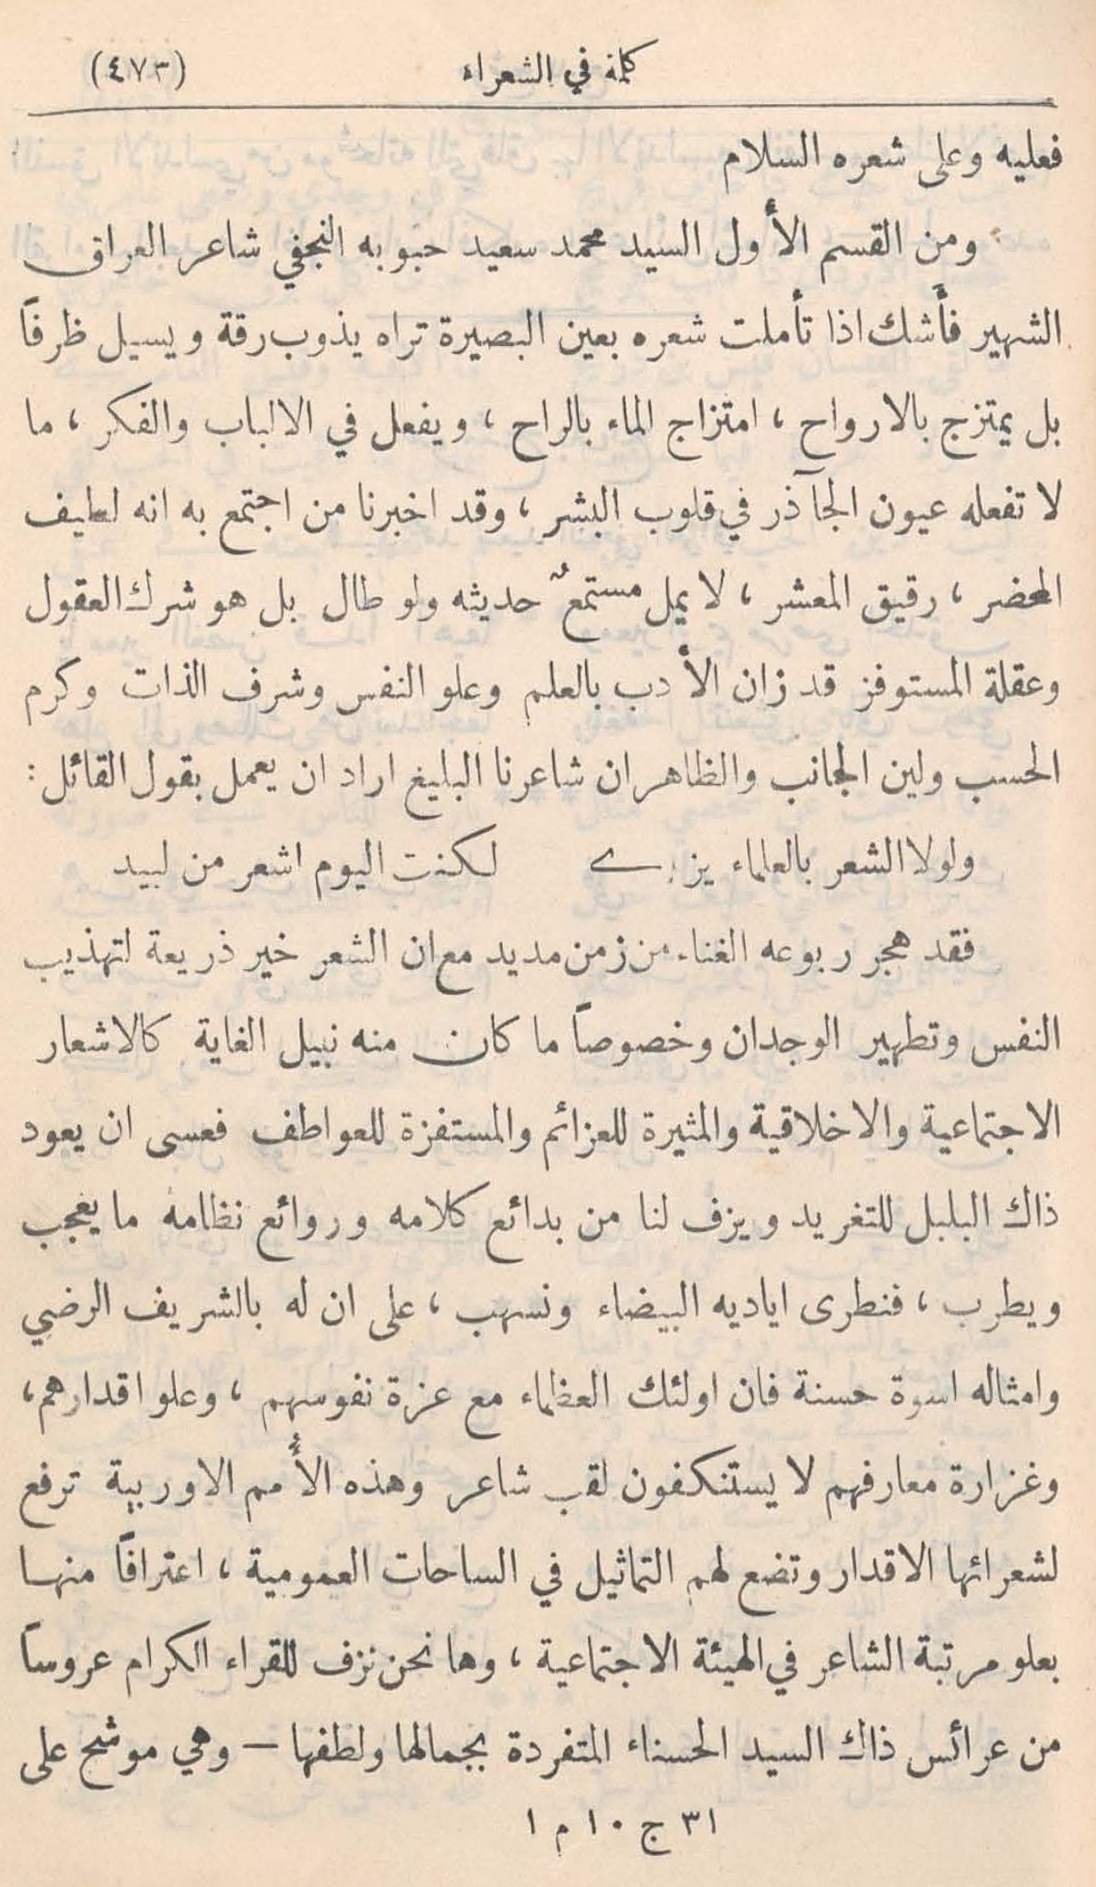 كلمة في الشعراء (٤٧٣)
فعليه وعلى شعره السلام
ومن القسم الأول السيد محمد سعيد حبوبه النجفي شاعر العراق
الشهير فأشك اذا تأملت شعره بعين البصيرة تراه يذوب رقة ويسيل ظرفاً
بل يمتزج بالارواح ، امتزاج الماء بالراح ، ويفعل في الالباب والفكر ، ما
لا تفعله عيون الجآذر في قلوب البشر ، وقد اخبرنا من اجتمع به انه لطيف
المحضر ، رقيق المعشر ، لا يمل مستمعٌ حديثه ولو طال بل هو شرك العقول
وعقلة المستوفز قد زان الأدب بالعلم وعلو النفس وشرف الذات وكرم
الحسب ولين الجانب والظاهر ان شاعرنا البليغ اراد ان يعمل بقول القائل :
ولولا الشعر بالعلماء يزري لكنت اليوم اشعر من لبيد
فقد هجر ربوعه الغناء من زمن مديد مع ان الشعر خير ذريعة لتهذيب
النفس وتطهير الوجدان وخصوصاً ما كان منه نبيل الغاية كالاشعار
الاجتماعية والاخلاقية والمثيرة للعزائم والمستفزة للعواطف فعسى ان يعود
ذاك البلبل للتغريد ويزف لنا من بدائع كلامه وروائع نظامه ما يعجب
ويطرب ، فنطرى اياديه البيضاء ونسهب ، على ان له بالشريف الرضي
وامثاله اسوة حسنة فان اولئك العظماء مع عزة نفوسهم ، وعلو اقدارهم ،
وغزارة معارفهم لا يستنكفون لقب شاعر وهذه الأُمم الاوربية ترفع
لشعرائها الاقدار وتضع لهم التماثيل في الساحات العمومية ، اعترافاً منها
بعلو مرتبة الشاعر في الهيئة الاجتماعية ، وها نحن نزف للقراء الكرام عروساً
من عرائس ذاك السيد الحسناء المتفردة بجمالها ولطفها — وهي موشح على
٣١ ج ١٠ م ١